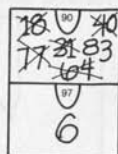 18 90 40
77 31 83
64
97
6